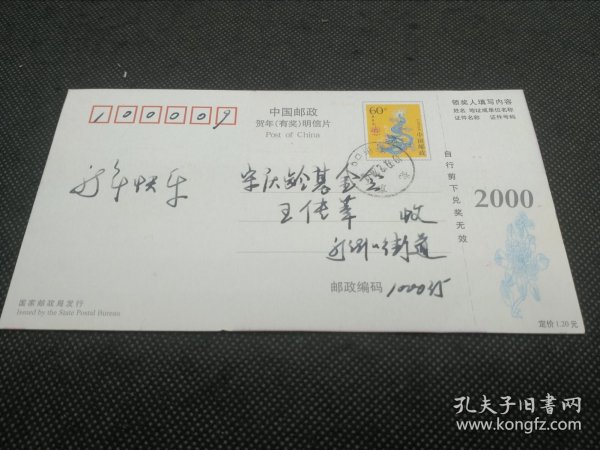 100009
中国邮政
贺年(有奖)明信片
Post of China
60分
中国邮政
领奖人填写内容
姓名 地址或单位名称
证件名称 证件号码
自行剪下兑奖无效
2000
新年快乐
宋庆龄基金会
王传革 收
街道
邮政编码
国家邮政局发行
Issued by the State Postal Bureau
定价1.20元
孔夫子旧书网
www.kongfz.com